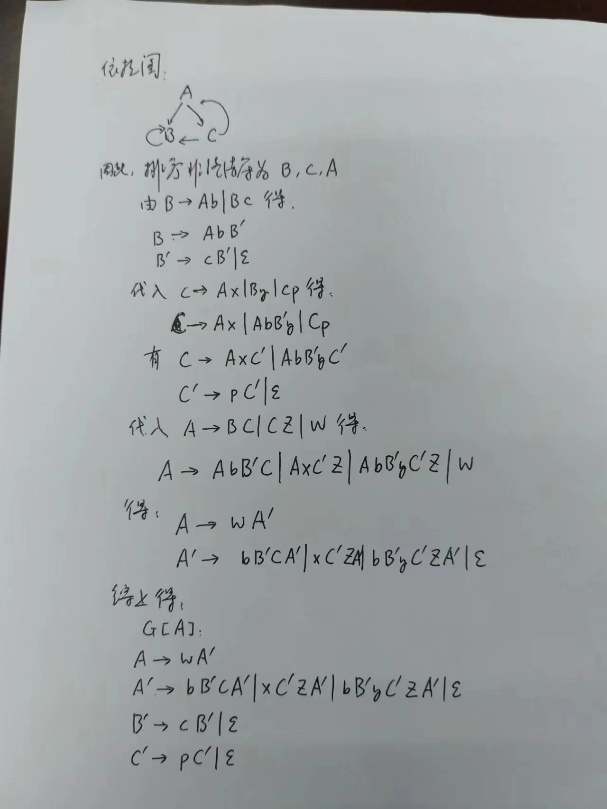 依赖图:
A
B C
因此, 排序非终结符为 B, C, A
由 B → Ab|Bc 得.
B → AbB′
B′ → cB′|ε
代入 C → Ax|By|Cp 得:
C → Ax|AbB′y|Cp
有 C → AxC′|AbB′yC′
C′ → pC′|ε
代入 A → BC|CZ|W 得:
A → AbB′C|AxC′Z|AbB′yC′Z|W
得: A → wA′
A′ → bB′CA′|xC′ZA′|bB′yC′ZA′|ε
综上得:
G[A]:
A → wA′
A′ → bB′CA′|xC′ZA′|bB′yC′ZA′|ε
B′ → cB′|ε
C′ → pC′|ε